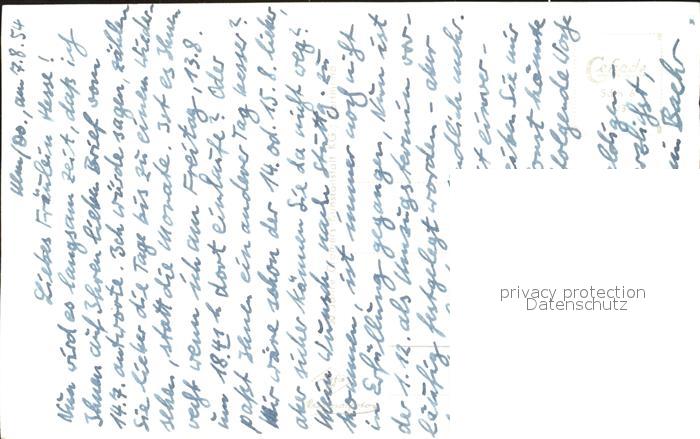 Ulm/Do., am 7.8.54
Liebes Fräulein Hesse!
Nun wird es langsam Zeit, daß ich
Ihnen auf Ihren lieben Brief vom
14.7. antworte. Ich würde sagen, zählen
Sie lieber die Tage bis zu einem Wieder-
sehen, statt die Monate. Ist es Ihnen
recht wenn ich am Freitag, 13.8.
um 18.41 h dort einlaufe? Oder
paßt Ihnen ein anderer Tag besser?
Mir wäre schon der 14. od. 15.8. lieber,
aber sicher können Sie da nicht weg?
Mein Wunsch, nach Stuttg. zu
kommen, ist immer noch nicht
in Erfüllung gegangen. Nun ist
der 1.12. als Umzugstermin vor-
läufig festgelegt worden - aber
endlich mehr.
einver-
Sie mir
sonst könnte
folgende Woche
privacy protection
Datenschutz